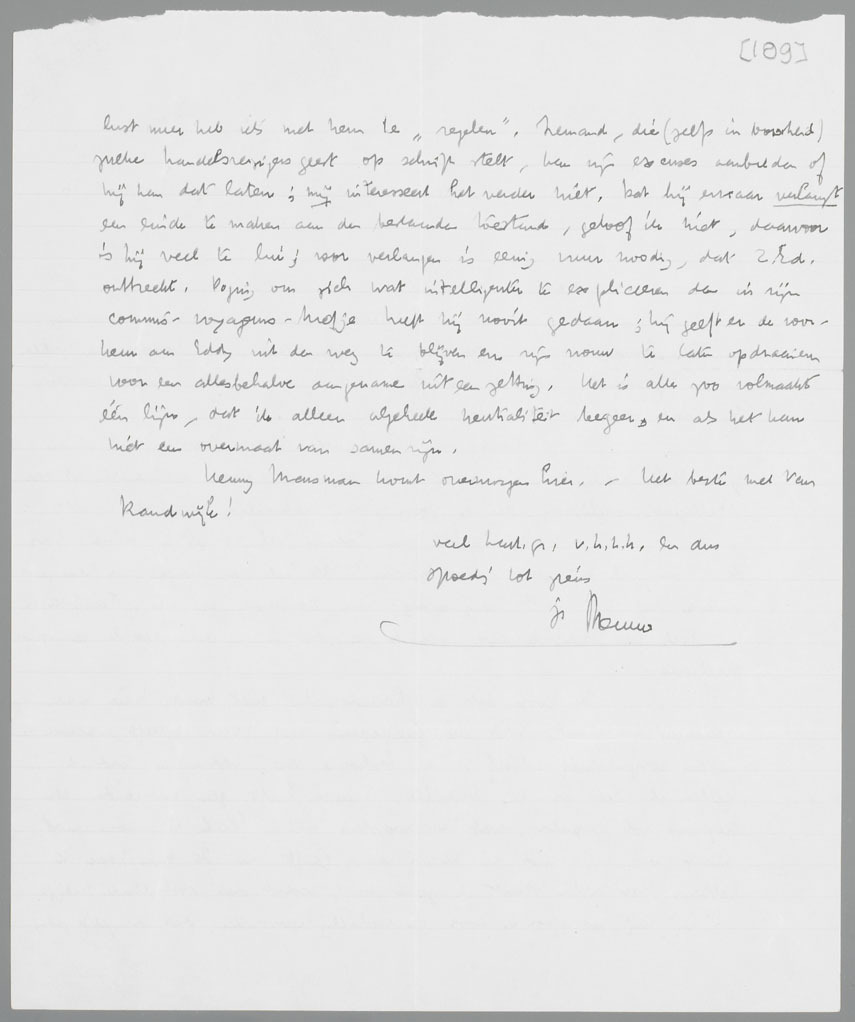 [109]
lust meer heb iets met hem te „regelen”. Iemand, die (zelfs in boosheid)
zulke handelsreizigersgeest op schrift stelt, kan zijn excuses aanbieden of
hij kan dat laten; mij interesseert het verder niet. Dat hij ernaar verlangt
een einde te maken aan den bestaanden toestand, geloof ik niet, daarvoor
is hij veel te lui; voor verlangen is eenig vuur noodig, dat Z.Ed.
ontbreekt. Poging om zich wat intelligenter te expliceeren dan in zijn
commis-voyageurs-briefje heeft hij nooit gedaan; hij geeft er de voor-
keur aan Eddy uit den weg te blijven en zijn vrouw te laten opdraaien
voor een allesbehalve aangename uiteenzetting. Het is alles zoo volmaakt
één lijn, dat ik alleen algeheele neutraliteit begeer, en als het kan
niet een overmaat van samenzijn.
Henny Marsman komt overmorgen hier. – Het beste met Van
Randwijk!
veel hart. gr., v.h.t.h. en dus
spoedig tot ziens
je Menno